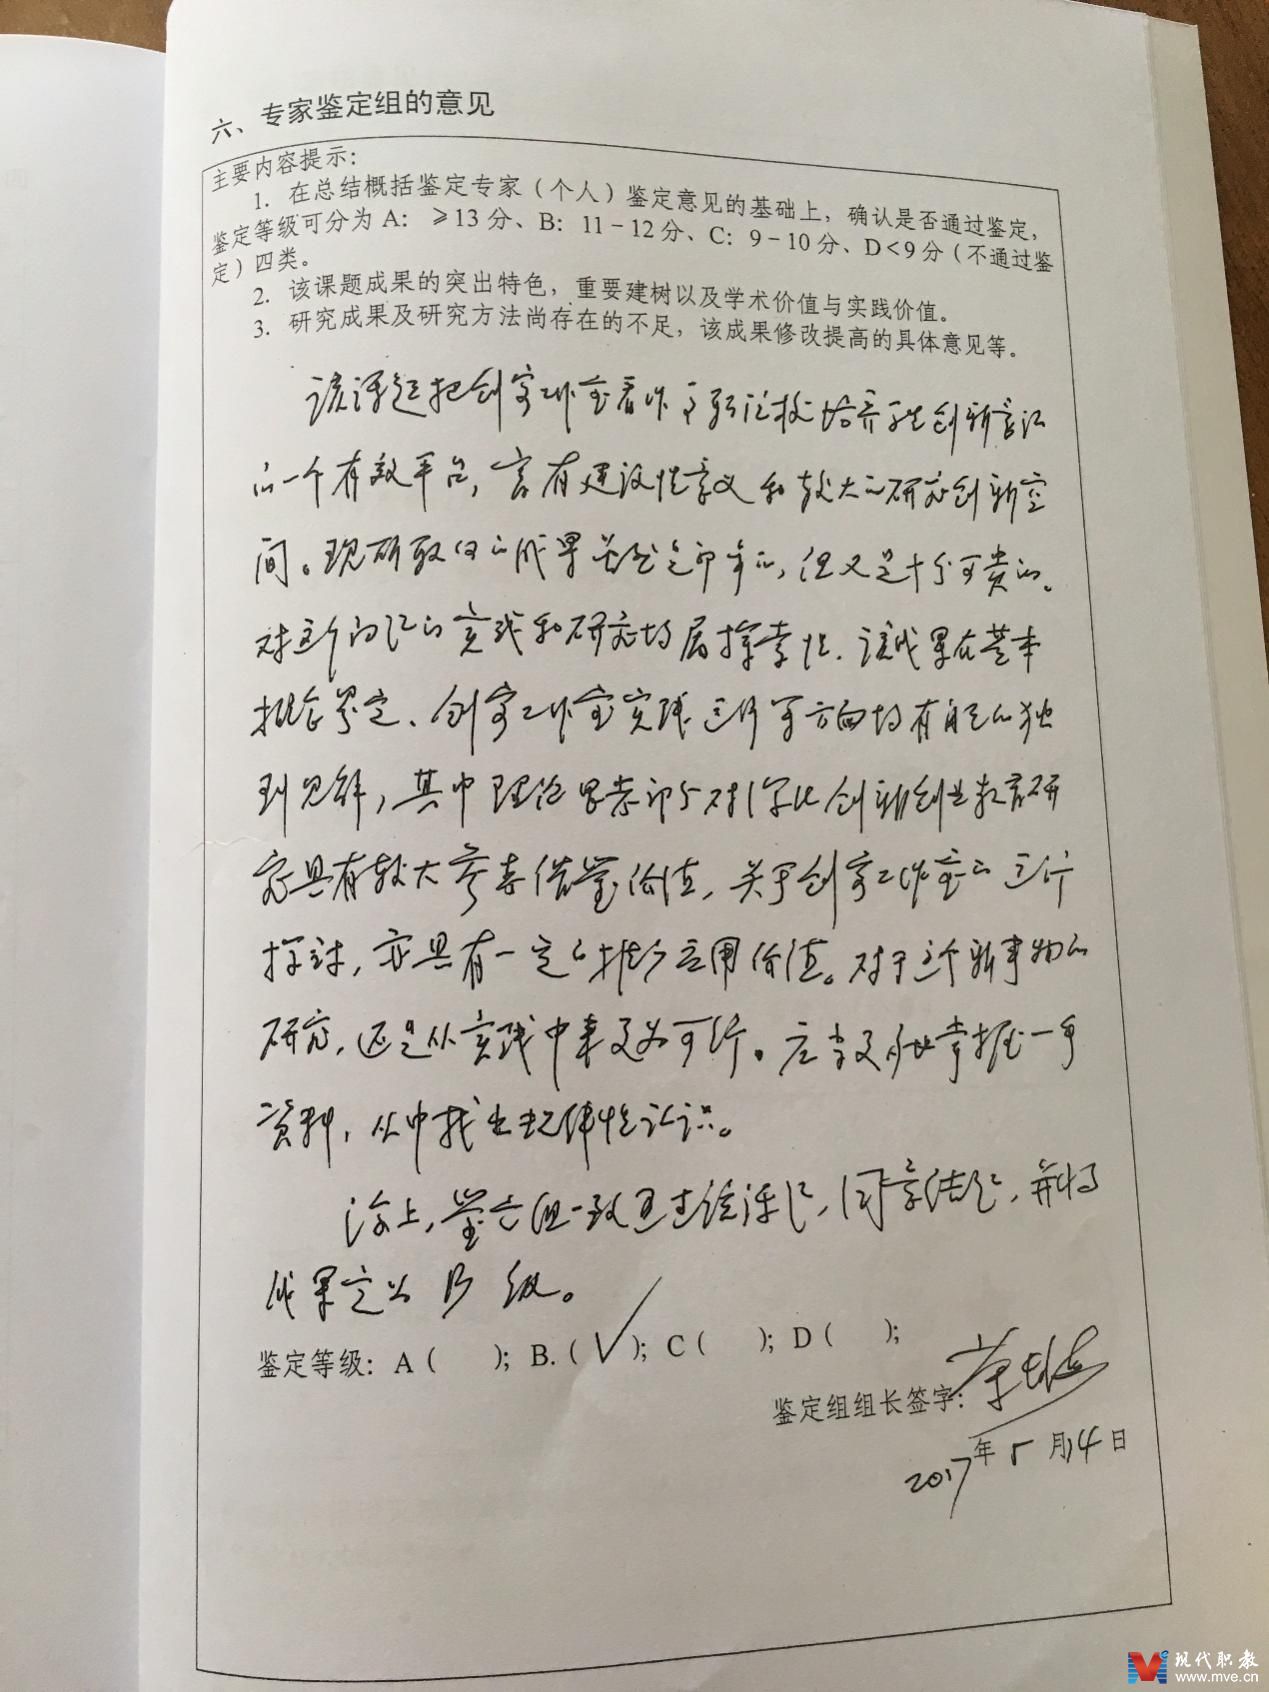 六、专家鉴定组的意见
主要内容提示：
1. 在总结概括鉴定专家（个人）鉴定意见的基础上，确认是否通过鉴定，
鉴定等级可分为 A：≥13 分、B：11－12 分、C：9－10 分、D<9 分（不通过鉴
定）四类。
2. 该课题成果的突出特色，重要建树以及学术价值与实践价值。
3. 研究成果及研究方法尚存在的不足，该成果修改提高的具体意见等。
该课题把创客工作室看作培养学生创新意识
的一个有效平台，富有建设性意义和较大的研究创新空
间。现所取得的成果虽然是初步的，但又是十分可贵的。
对这个问题的实践和研究均属探索性，该成果在基本
概念界定、创客工作室实践运作等方面均有自己的独
到见解，其中理论思考部分对深化创新创业教育研
究具有较大参考借鉴价值，关于创客工作室的运行
探讨，亦具有一定的推广应用价值。对于这个新事物的
研究，还是从实践中来更为可行。应当更多地掌握一手
资料，从中找出规律性认识。
综上，鉴定组一致通过该课题，同意结题，并将
成果定为 B 级。
鉴定等级：A（ ）；B.（√）；C（ ）；D（ ）；
鉴定组组长签字：
2017年 5 月14日
现代职教
www.mve.cn